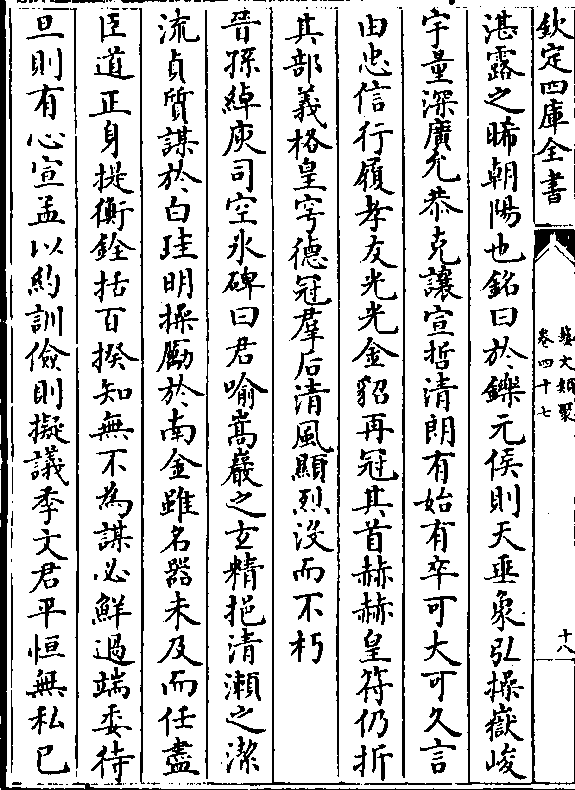 欽定四庫全書
藝文類聚
卷四十七
十八
湛露之晞朝陽也銘曰於鑠元侯則天垂象弘操嶽峻
宇量深廣允恭克讓宣哲清朗有始有卒可大可久言
由忠信行履孝友光光金貂再冠其首赫赫皇符仍折
其部義格皇穹德冠羣后清風顯烈沒而不朽
晉孫綽庾司空氷碑曰君喻嵩巖之玄精挹清瀬之潔
流貞質謀於白珪明操勵於南金雖名器未及而任盡
臣道正身提衡銓括百揆知無不為謀必鮮過端委待
旦則有心宣孟以約訓儉則擬議季文君平恒無私已